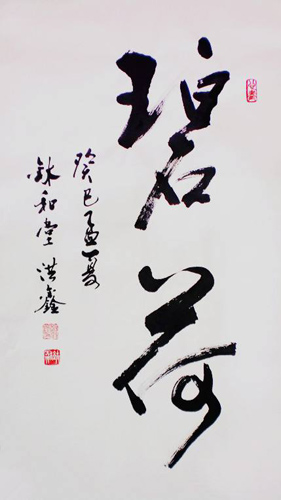 碧荷
癸巳孟夏
和堂洪鑫